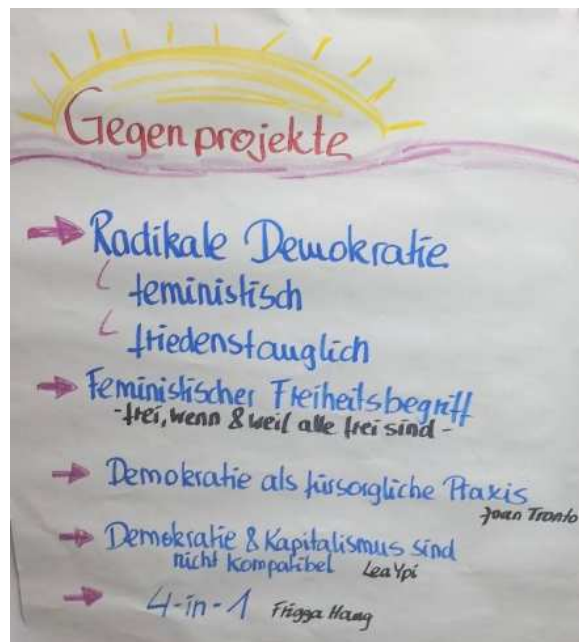 Gegenprojekte
Radikale Demokratie
feministisch
friedenstauglich
Feministischer Freiheitsbegriff
-frei, wenn & weil alle frei sind-
Demokratie als fürsorgliche Praxis
Joan Tronto
Demokratie & Kapitalismus sind
nicht kompatibel Lea Ypi
4-in-1 Frigga Haug